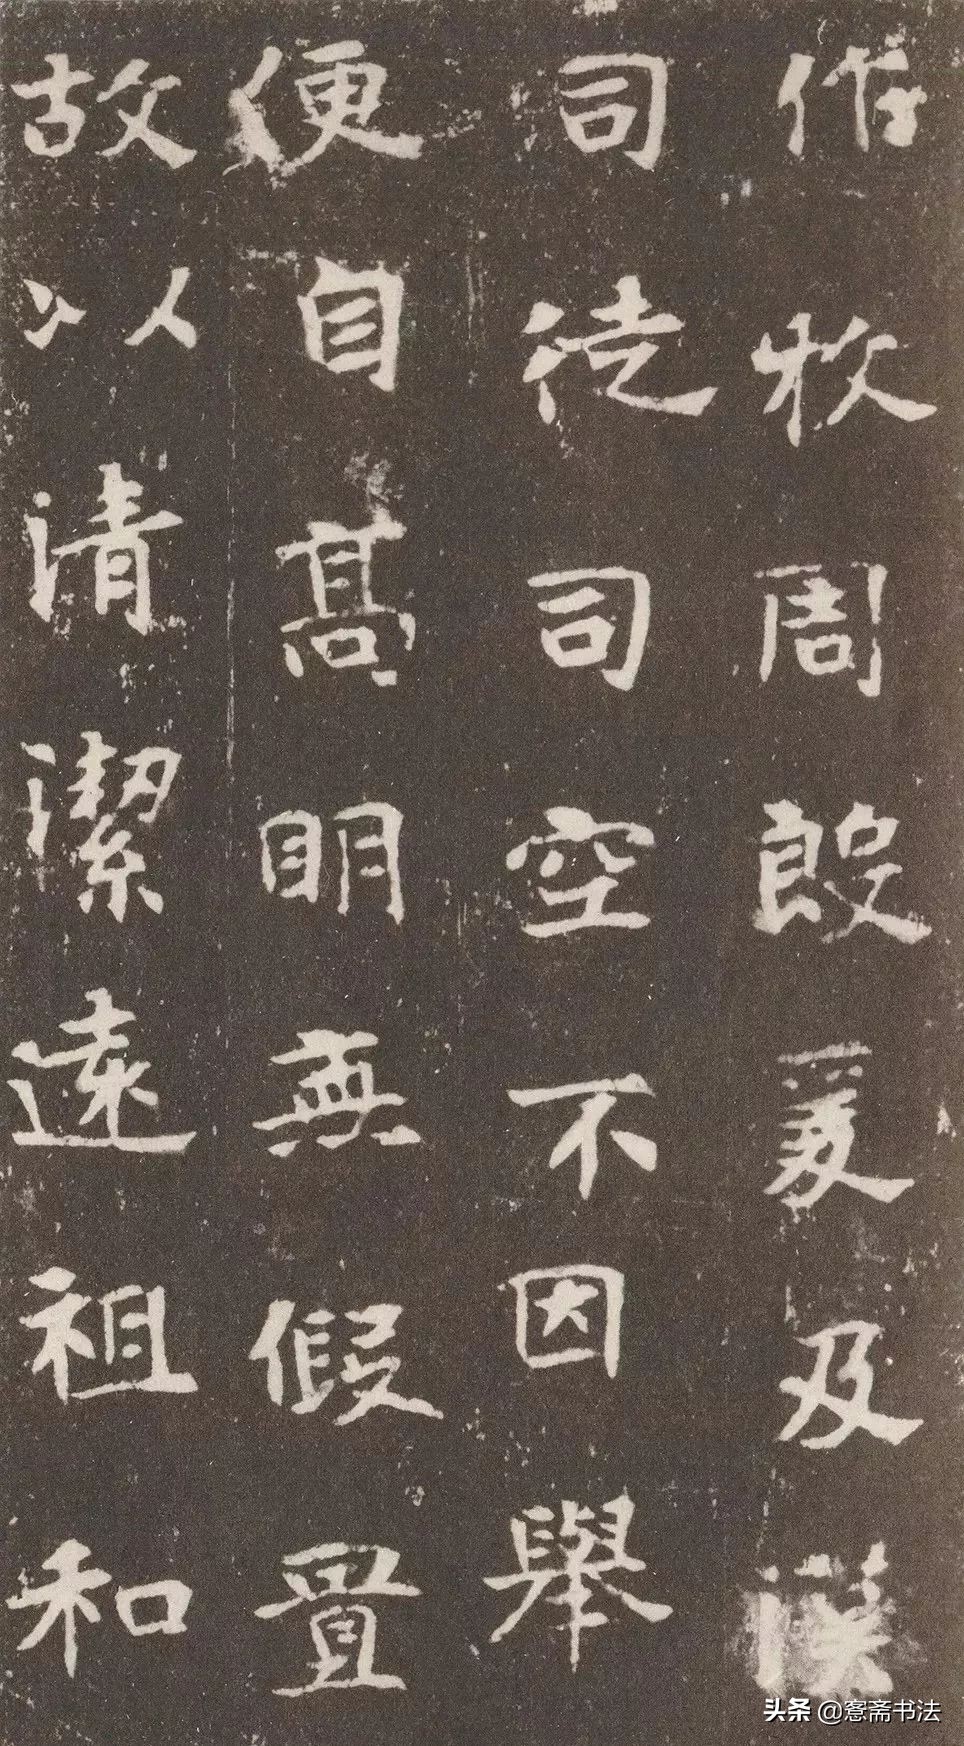 作牧周殷爰及漢
司徒司空不因舉
便自高明無假置
故以清潔遠祖和
头条 @愙斋书法